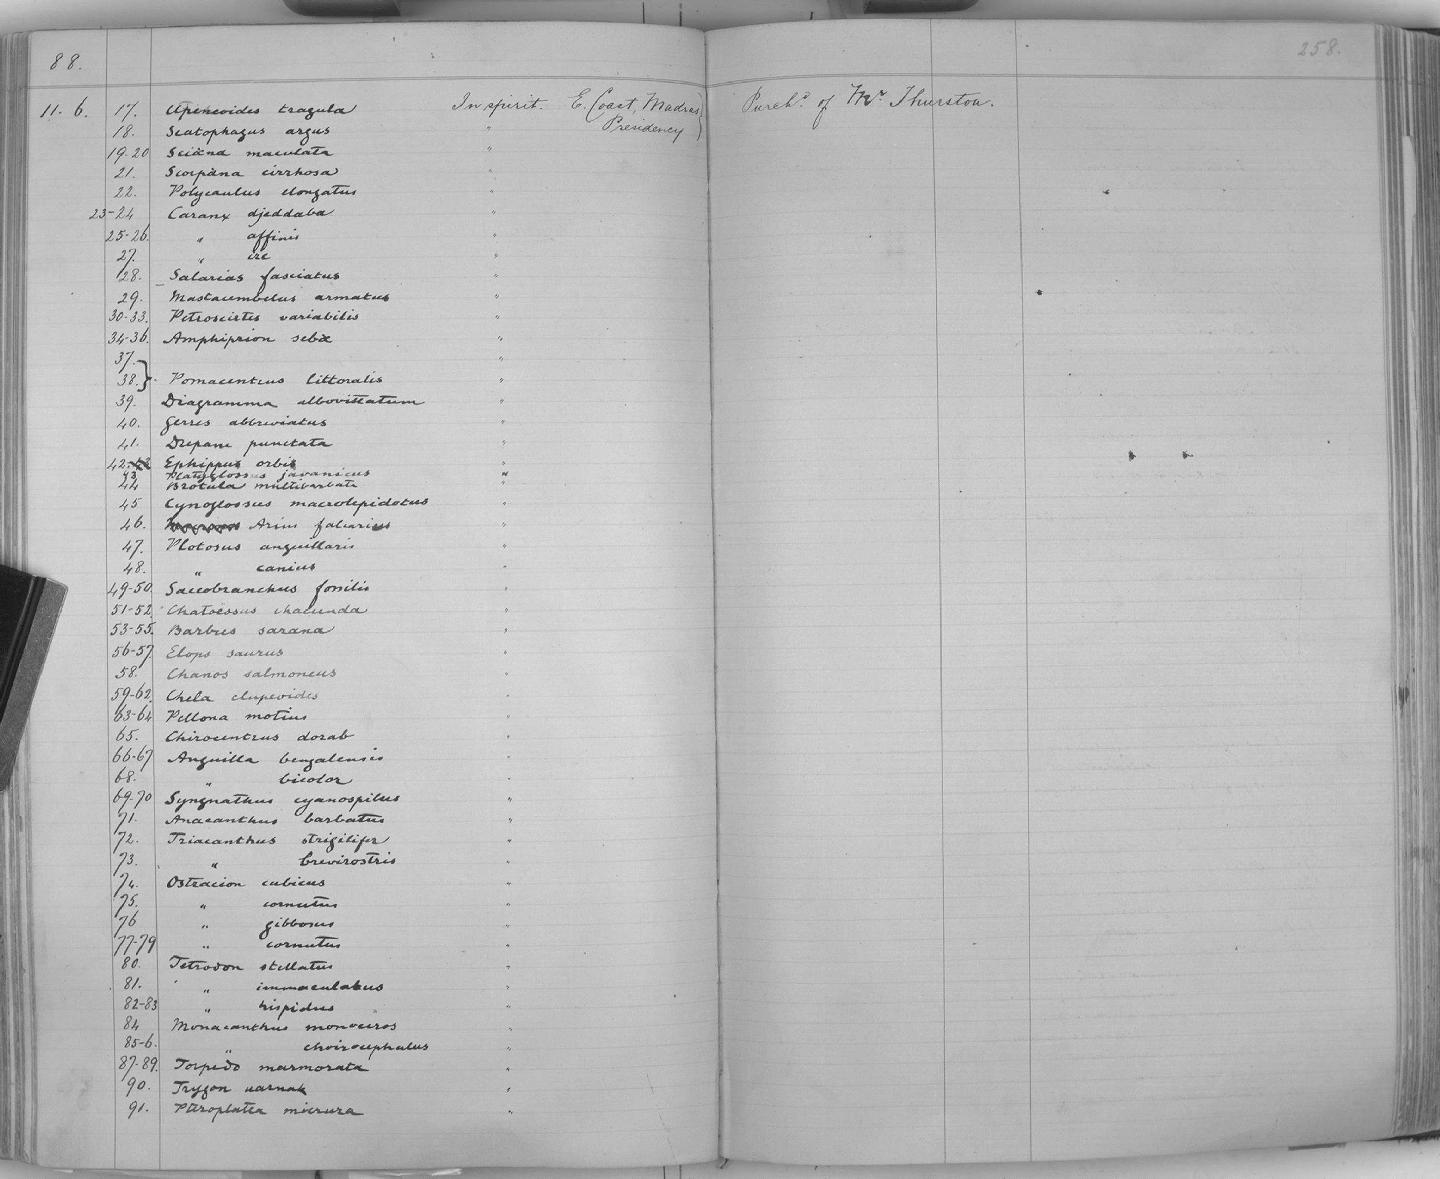 88.
258.
11. 6. 17. Upeneoides tragula In spirit. E. Coast, Madras Purchd. of Mr. Thurston.
18. Scatophagus argus " Presidency
19-20 Sciæna maculata "
21. Scorpæna cirrhosa "
22. Polycaulus elongatus "
23-24 Caranx djeddaba "
25-26. " affinis "
27. " ire "
28. Salarias fasciatus "
29. Mastacembelus armatus "
30-33. Petroscirtes variabilis "
34-36. Amphiprion sebæ "
37. "
38. Pomacentrus littoralis "
39. Diagramma albovittatum "
40. Gerres abbreviatus "
41. Drepane punctata "
42. Ephippus orbis "
43 Platyglossus javanicus "
44 Brotula multibarbata "
45 Cynoglossus macrolepidotus "
46. Arius falcarius "
47. Plotosus anguillaris "
48. " canius "
49-50. Saccobranchus fossilis "
51-52. Chatoessus chacunda "
53-55. Barbus sarana "
56-57 Elops saurus "
58. Chanos salmoneus "
59-62. Chela clupeoides "
63-64 Pellona motius "
65. Chirocentrus dorab "
66-67 Anguilla bengalensis "
68. " bicolor "
69-70 Syngnathus cyanospilus "
71. Anacanthus barbatus "
72. Triacanthus strigilifer "
73. " brevirostris "
74. Ostracion cubicus "
75. " cornutus "
76 " gibbosus "
77-79 " cornutus "
80. Tetrodon stellatus "
81. " immaculatus "
82-83 " hispidus "
84 Monacanthus monoceros "
85-6. " choirocephalus "
87-89. Torpedo marmorata "
90. Trygon uarnak "
91. Pteroplatea micrura "